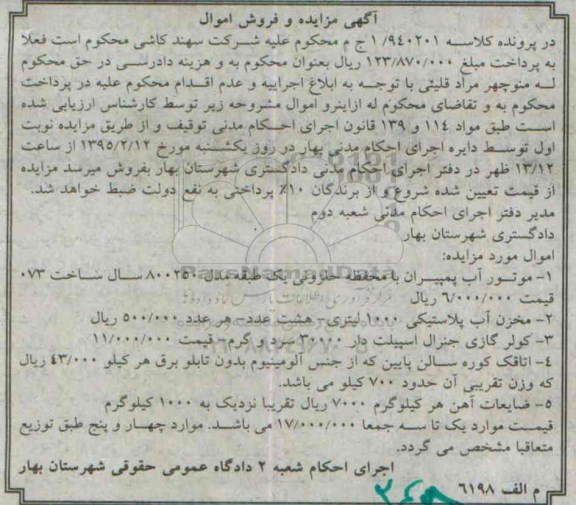 آگهی مزایده و فروش اموال
در پرونده کلاسه ۱/۹۴۰۲۰۱ ج م محکوم علیه شرکت سهند کاشی محکوم است فعلا
به پرداخت مبلغ ۱۲۳/۸۷۰/۰۰۰ ریال بعنوان محکوم به و هزینه دادرسی در حق محکوم
له منوچهر مراد قلیئی با توجه به ابلاغ اجراییه و عدم اقدام محکوم علیه در پرداخت
محکوم به و تقاضای محکوم له ازاینرو اموال مشروحه زیر توسط کارشناس ارزیابی شده
است طبق مواد ۱۱٤ و ۱۳۹ قانون اجرای احکام مدنی توقیف و از طریق مزایده نوبت
اول توسط دایره اجرای احکام مدنی بهار در روز یکشنبه مورخ ۱۳۹۵/۲/۱۲ از ساعت
۱۳/۱۲ ظهر در دفتر اجرای احکام مدنی دادگستری شهرستان بهار بفروش میرسد مزایده
از قیمت تعیین شده شروع و از برندگان ۱۰٪ پرداختی به نفع دولت ضبط خواهد شد.
مدیر دفتر اجرای احکام مدنی شعبه دوم
دادگستری شهرستان بهار
اموال مورد مزایده:
۱- موتور آب پمپیران با محفظه حلزونی یک طبقه مدل ۸۰۰۲۵۰ سال ساخت ۰۷۳
قیمت ۶/۰۰۰/۰۰۰ ریال
۲- مخزن آب پلاستیکی ۱۰۰۰ لیتری- هشت عدد- هر عدد ۵۰۰/۰۰۰ ریال
۳- کولر گازی جنرال اسپیلت دار ۳۰۰۰۰ سرد و گرم- قیمت ۱۱/۰۰۰/۰۰۰
٤- اتاقک کوره سالن پایین که از جنس آلومینیوم بدون تابلو برق هر کیلو ٤۳/۰۰۰ ریال
که وزن تقریبی آن حدود ۷۰۰ کیلو می باشد.
۵- ضایعات آهن هر کیلوگرم ۷۰۰۰ ریال تقریبا نزدیک به ۱۰۰۰ کیلوگرم
قیمت موارد یک تا سه جمعا ۱۷/۰۰۰/۰۰۰ می باشد. موارد چهار و پنج طبق توزیع
متعاقبا مشخص می گردد.
اجرای احکام شعبه ۲ دادگاه عمومی حقوقی شهرستان بهار
م الف ۶۱۹۸